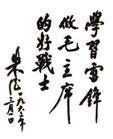 學習雷鋒
做毛主席
的好战士
朱德
一九六三年
三月一日